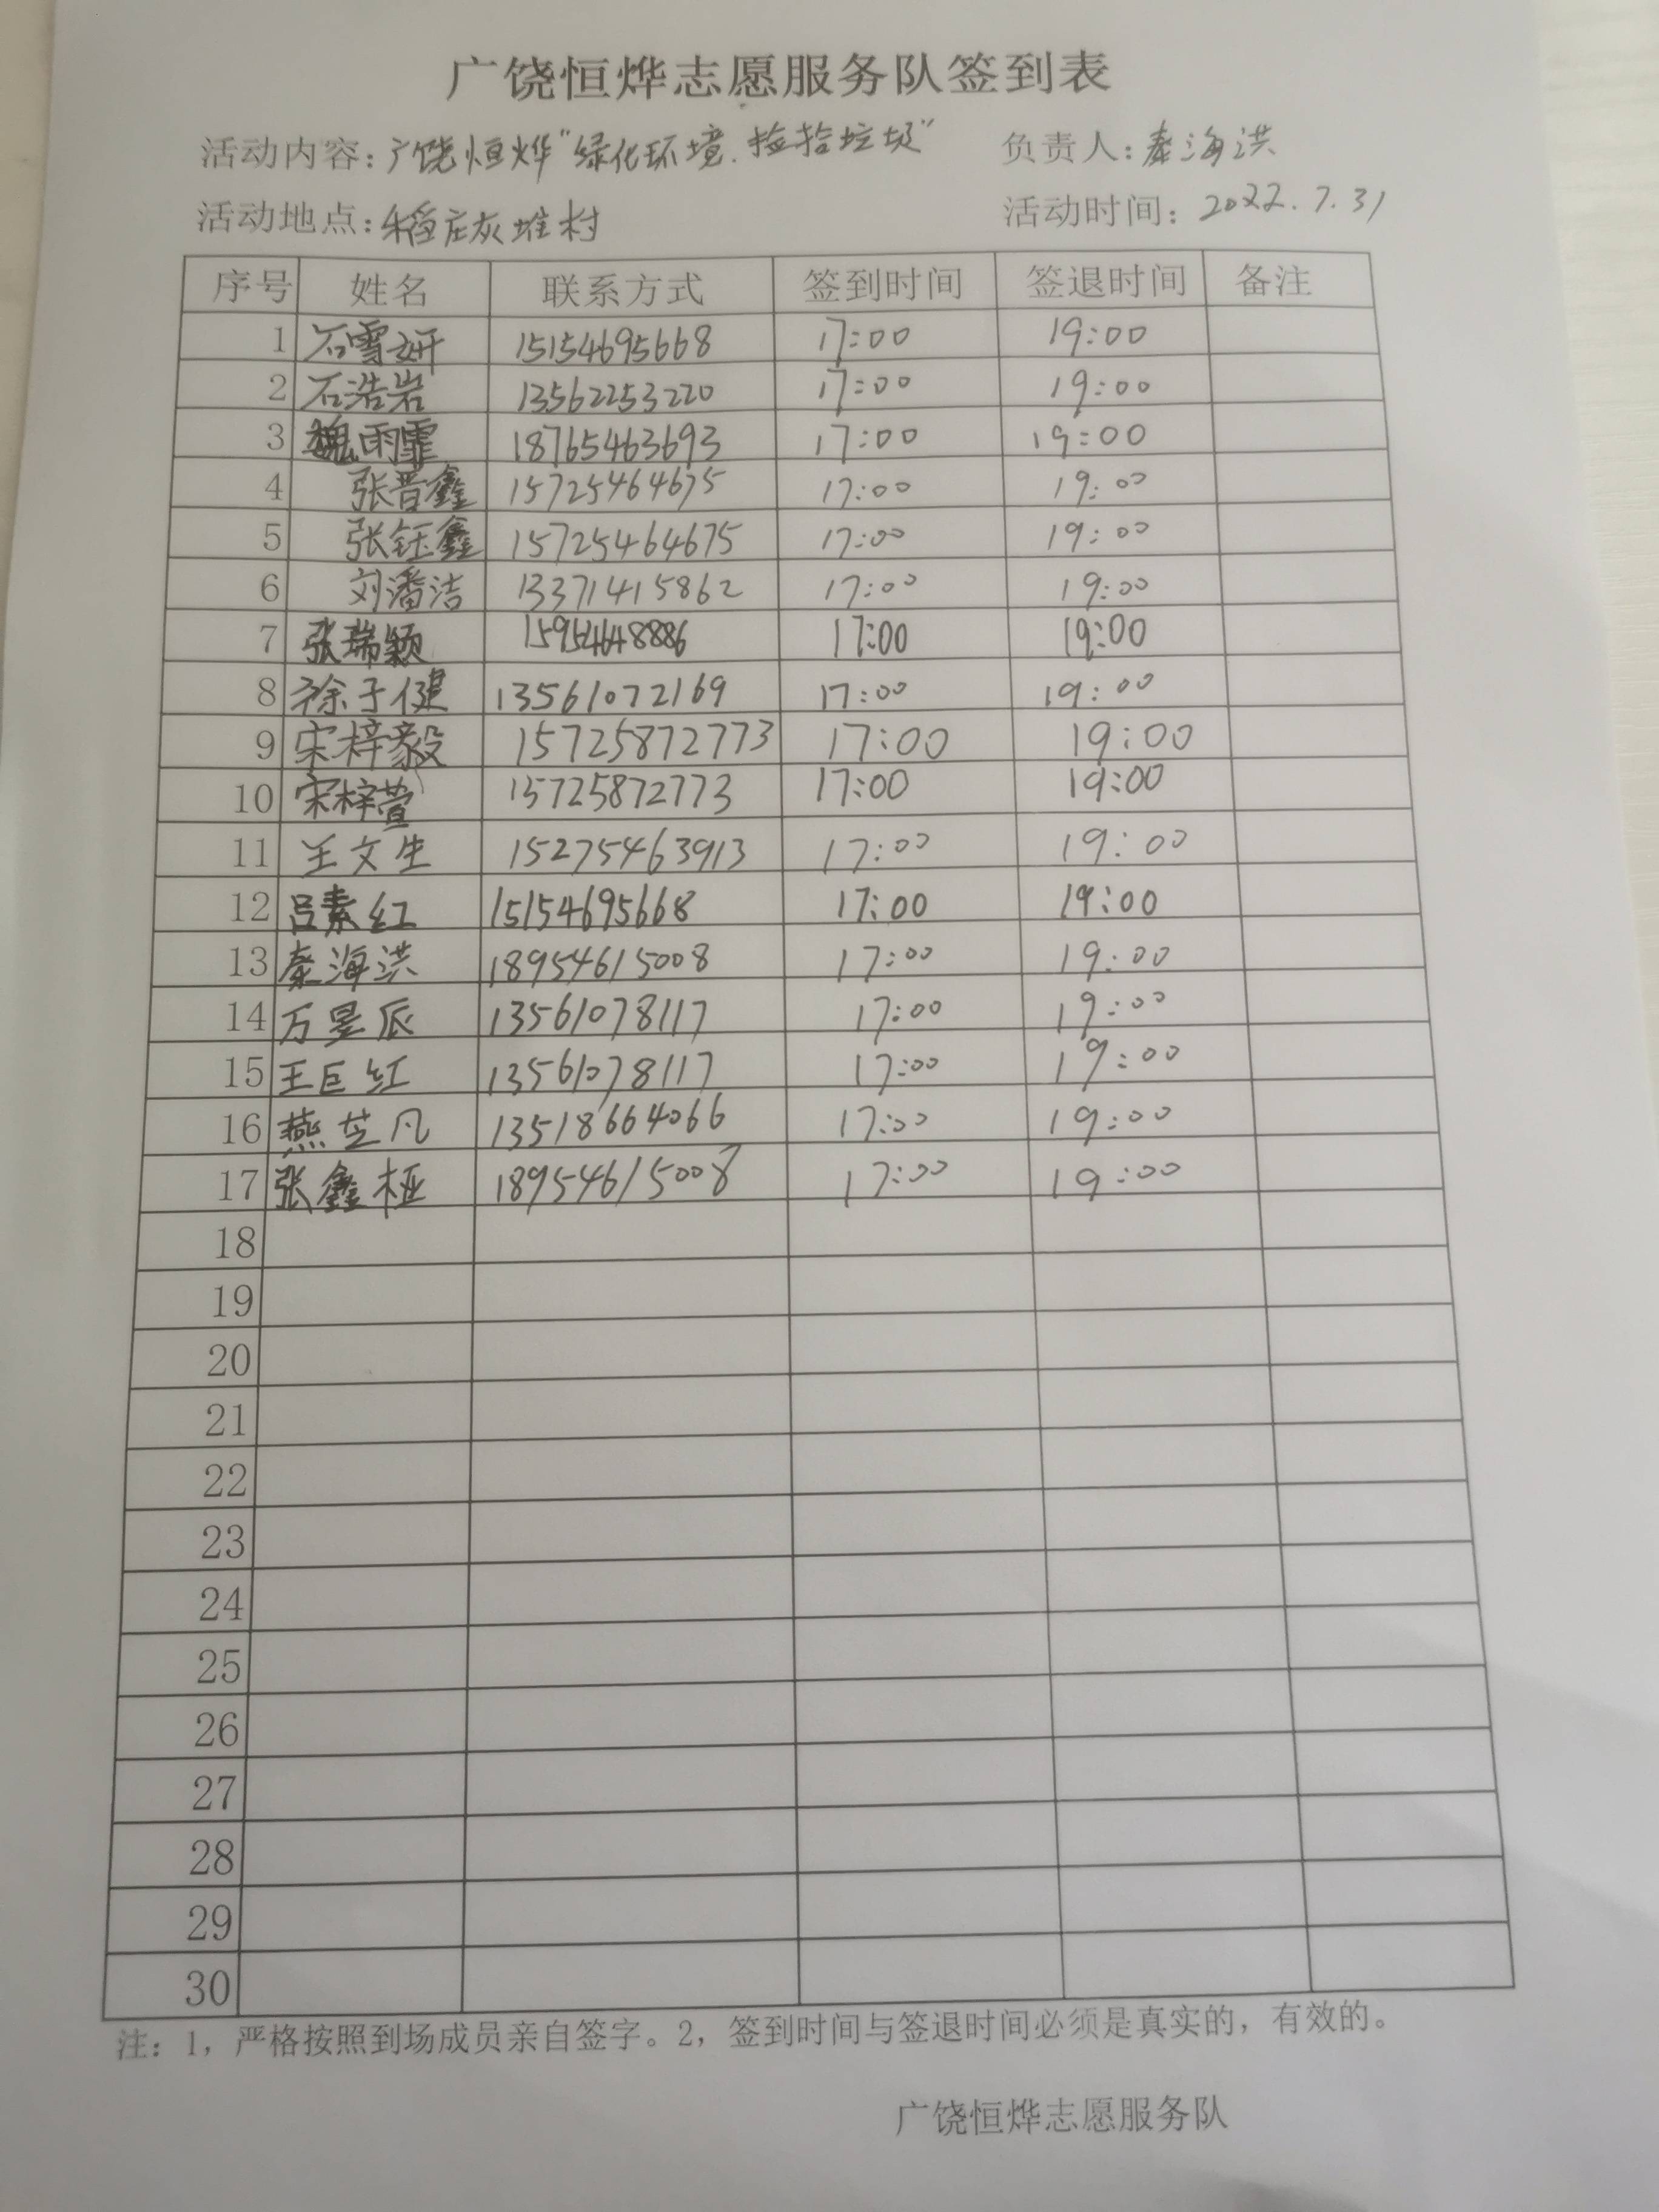 广饶恒烨志愿服务队签到表
活动内容：广饶恒烨“绿化环境.捡拾垃圾” 负责人：秦海洪
活动地点：稻庄灰堆村 活动时间：2022.7.31
序号 姓名 联系方式 签到时间 签退时间 备注
1 石雪妍 15154695668 17:00 19:00
2 石浩岩 13562253220 17:00 19:00
3 魏雨霏 18765463693 17:00 19:00
4 张晋鑫 15725464675 17:00 19:00
5 张钰鑫 15725464675 17:00 19:00
6 刘潘洁 13371415862 17:00 19:00
7 张瑞颖 15954648886 17:00 19:00
8 徐子健 13561072169 17:00 19:00
9 宋梓毅 15725872773 17:00 19:00
10 宋梓萱 15725872773 17:00 19:00
11 王文生 15275463913 17:00 19:00
12 吕素红 15154695668 17:00 19:00
13 秦海洪 18954615008 17:00 19:00
14 万昱辰 13561078117 17:00 19:00
15 王巨红 13561078117 17:00 19:00
16 燕芝凡 13518664066 17:00 19:00
17 张鑫桠 18954615008 17:00 19:00
18
19
20
21
22
23
24
25
26
27
28
29
30
注：1，严格按照到场成员亲自签字。2，签到时间与签退时间必须是真实的，有效的。
广饶恒烨志愿服务队